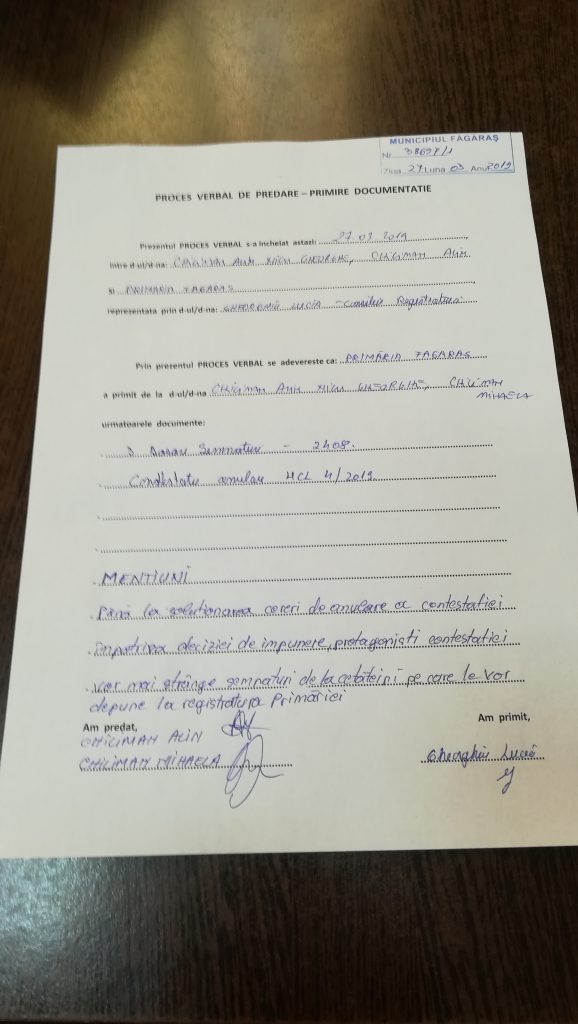 MUNICIPIUL FĂGĂRAŞ
Nr 38697/1
Ziua 27 Luna 03 Anul 2019
PROCES VERBAL DE PREDARE – PRIMIRE DOCUMENTATIE
Prezentul PROCES VERBAL s-a incheiat astazi: 27 03 2019
intre d-ul/d-na: CHILIMAN ALIN GHEORGHE, CHILIMAN
si PRIMARIA FAGARAS
reprezentata prin d-ul/d-na: GHEORGHIU LUCIA - Consilier Registratura
Prin prezentul PROCES VERBAL se adevereste ca: PRIMĂRIA FAGARAS
a primit de la d-ul/d-na CHILIMAN ALIN GHEORGHE, CHILIMAN
MIHAELA
urmatoarele documente:
Semnaturi - 2408.
Contestatie anulare HCL 4/2019
MENTIUNI
Până la solutionarea cererii de anulare a contestatiei
împotriva deciziei de impunere, protagonisti contestatiei
vor mai strânge semnaturi de la cetăteni pe care le vor
depune la registratura Primăriei
Am predat,
Am primit,
CHILIMAN ALIN
CHILIMAN MIHAELA
Gheorghiu Lucia